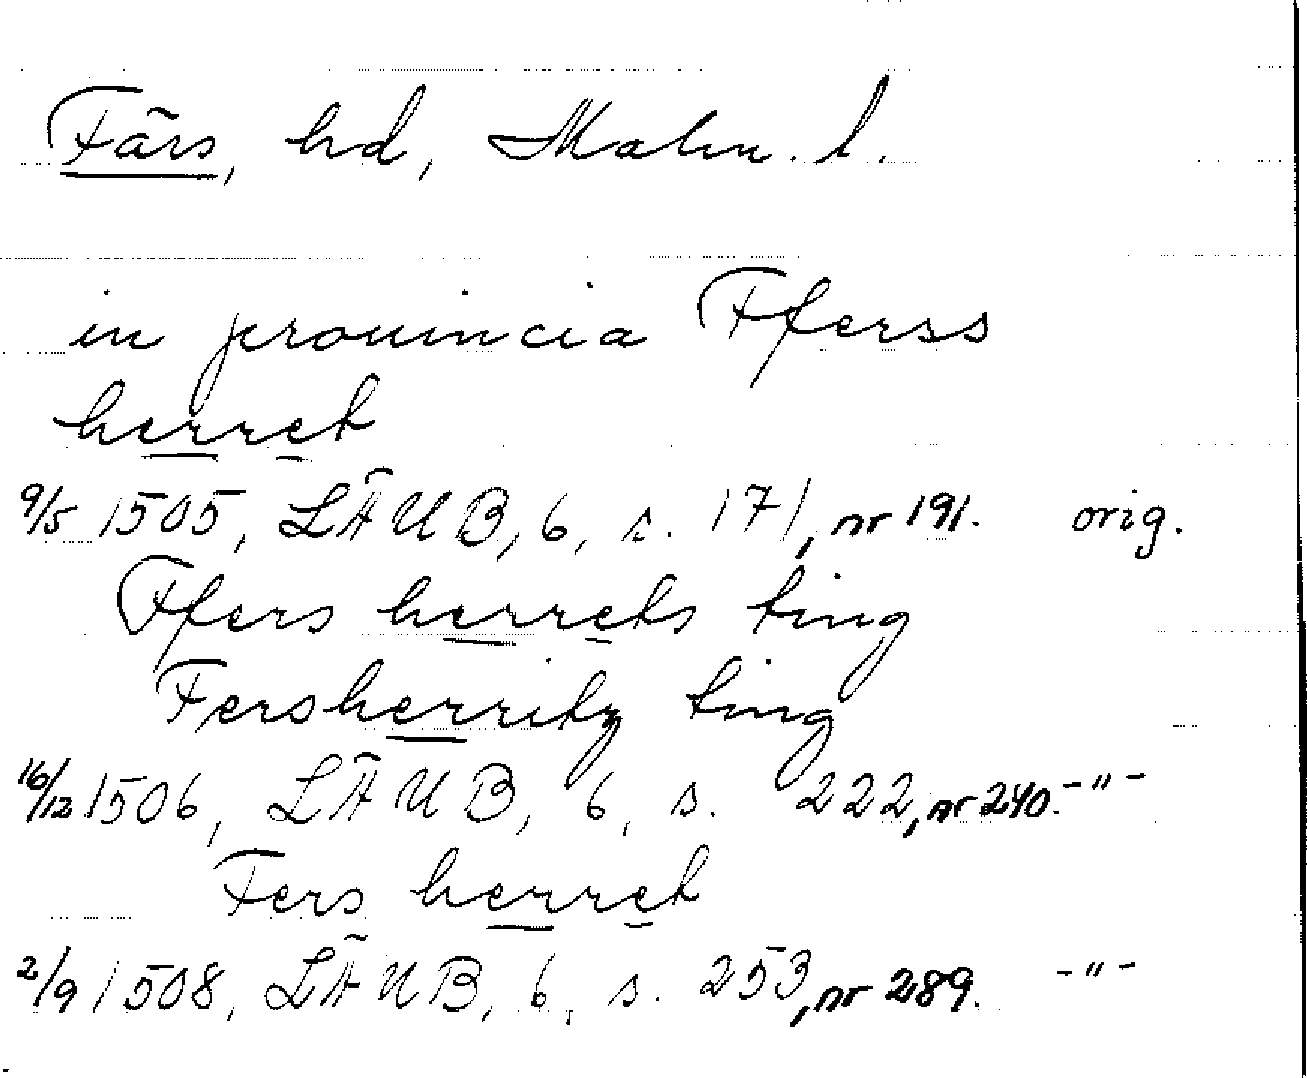 Färs, hd, Malm. l.
in prouincia Fferss
herret
9/5 1505, LÄUB, 6, s. 171, nr 191. orig.
Ffers herrets ting
Fersherritz ting
16/12 1506, LÄUB, 6, s. 222, nr 240. -"-
Fers herret
2/9 1508, LÄUB, 6, s. 253, nr 289. -"-